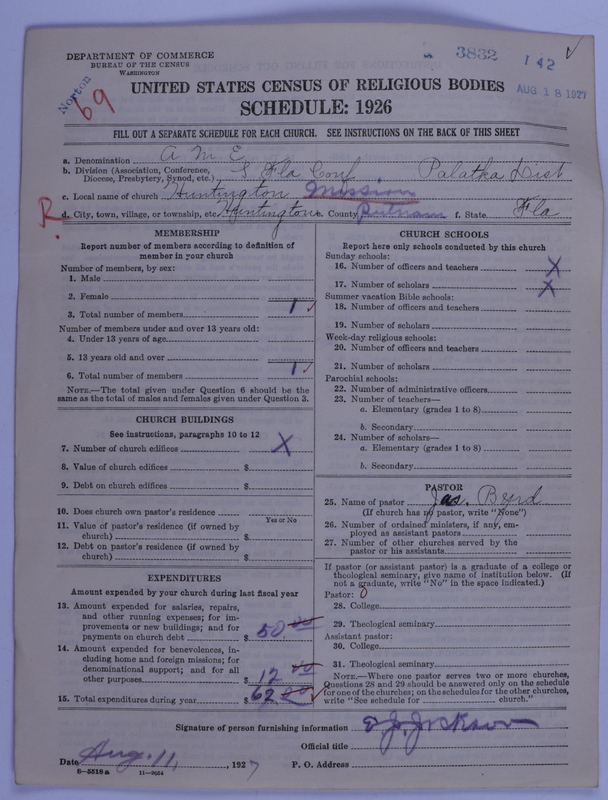 DEPARTMENT OF COMMERCE
BUREAU OF THE CENSUS
WASHINGTON
Norton
69
3832
142
AUG 18 1927
UNITED STATES CENSUS OF RELIGIOUS BODIES
SCHEDULE: 1926
FILL OUT A SEPARATE SCHEDULE FOR EACH CHURCH. SEE INSTRUCTIONS ON THE BACK OF THIS SHEET
a. Denomination A M E
b. Division (Association, Conference, Diocese, Presbytery, Synod, etc.) S Fla Conf Palatka Dist
c. Local name of church Huntington Mission
R. d. City, town, village, or township, etc. Huntington e. County Putnam f. State Fla
MEMBERSHIP
Report number of members according to definition of
member in your church
Number of members, by sex:
1. Male
2. Female
3. Total number of members 1 ✓
Number of members under and over 13 years old:
4. Under 13 years of age
5. 13 years old and over
6. Total number of members 1 ✓
NOTE.—The total given under Question 6 should be the
same as the total of males and females given under Question 3.
CHURCH BUILDINGS
See instructions, paragraphs 10 to 12
7. Number of church edifices X
8. Value of church edifices $
9. Debt on church edifices $
10. Does church own pastor's residence
Yes or No
11. Value of pastor's residence (if owned by
church) $
12. Debt on pastor's residence (if owned by
church) $
EXPENDITURES
Amount expended by your church during last fiscal year
13. Amount expended for salaries, repairs,
and other running expenses; for im-
provements or new buildings; and for
payments on church debt $ 50.00
14. Amount expended for benevolences, in-
cluding home and foreign missions; for
denominational support; and for all
other purposes $ 12.00
15. Total expenditures during year $ 62.00 ✓
CHURCH SCHOOLS
Report here only schools conducted by this church
Sunday schools:
16. Number of officers and teachers X
17. Number of scholars X
Summer vacation Bible schools:
18. Number of officers and teachers
19. Number of scholars
Week-day religious schools:
20. Number of officers and teachers
21. Number of scholars
Parochial schools:
22. Number of administrative officers
23. Number of teachers—
a. Elementary (grades 1 to 8)
b. Secondary
24. Number of scholars—
a. Elementary (grades 1 to 8)
b. Secondary
PASTOR
25. Name of pastor Jas. Byrd
(If church has no pastor, write "None")
26. Number of ordained ministers, if any, em-
ployed as assistant pastors
27. Number of other churches served by the
pastor or his assistants
If pastor (or assistant pastor) is a graduate of a college or
theological seminary, give name of institution below. (If
not a graduate, write "No" in the space indicated.)
Pastor: 0
28. College
29. Theological seminary
Assistant pastor:
30. College
31. Theological seminary
NOTE.—Where one pastor serves two or more churches,
Questions 28 and 29 should be answered only on the schedule
for one of the churches; on the schedules for the other churches,
write "See schedule for church."
Signature of person furnishing information E J. Jackson
Official title
Date Aug. 11, 1927 P. O. Address
8—5518a 11—9664